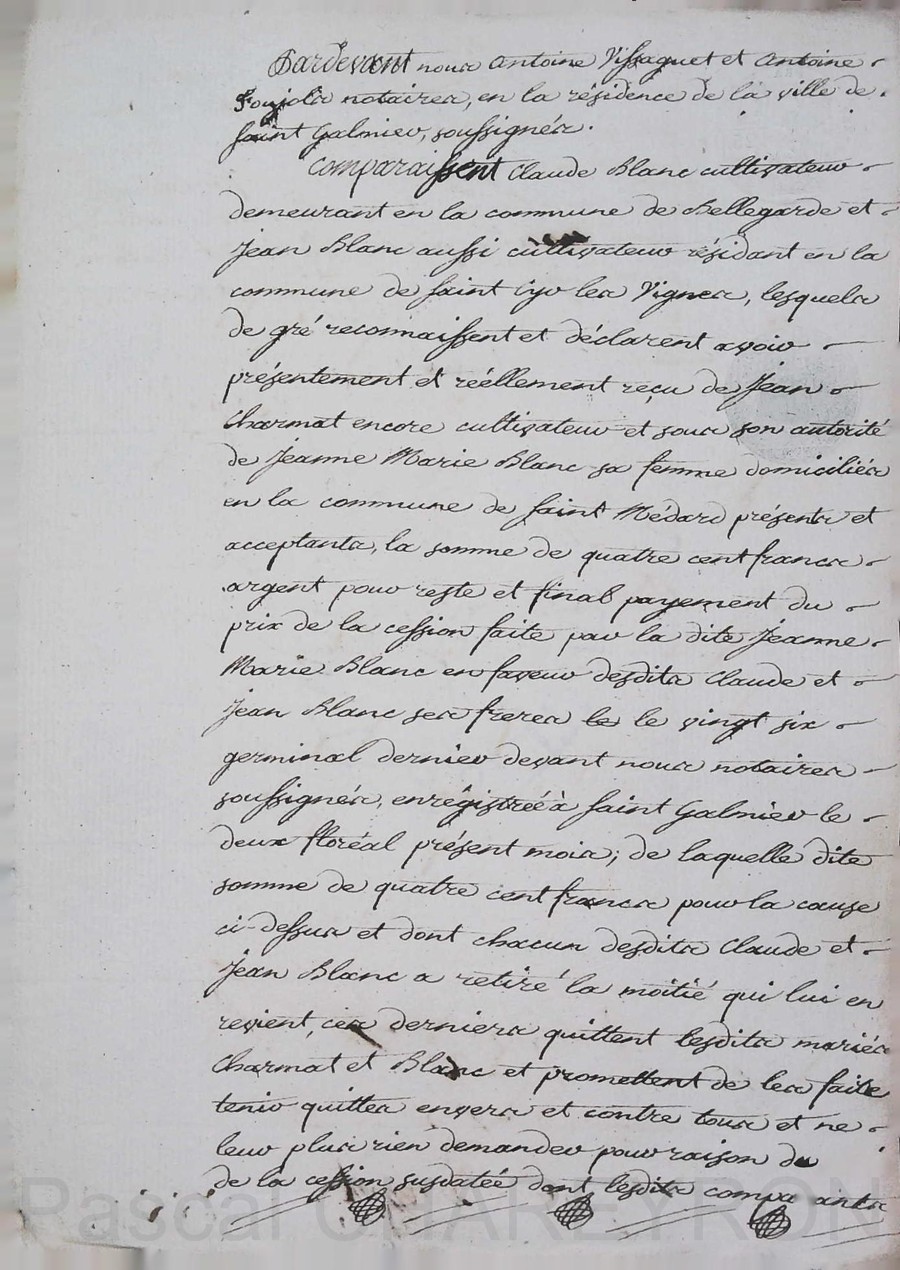 Pardevant nous antoine Vissaguet et antoine
Poujols notaires, en la résidence de la ville de
saint Galmier, soussignés.
Comparaissent Claude Blanc cultivateur
demeurant en la commune de Bellegarde et
Jean Blanc aussi cultivateur résidant en la
commune de saint Cyr les Vignes, lesquels
de gré reconnaissent et déclarent avoir
présentement et réellement reçu de Jean
Charmat encore cultivateur et sous son autorité
de Jeanne Marie Blanc sa femme domiciliés
en la commune de saint Médard présents et
acceptants, la somme de quatre cent francs
argent pour reste et final payement du
prix de la cession faite par la dite Jeanne
Marie Blanc en faveur desdits Claude et
Jean Blanc ses freres le le vingt six
germinal dernier devant nous notaires
soussignés, enregistrée à saint Galmier le
deux floréal présent mois; de laquelle dite
somme de quatre cent francs pour la cause
ci-dessus et dont chacun desdits Claude et
Jean Blanc a retiré la moitié qui lui en
revient, ces derniers quittent lesdits mariés
Charmat et Blanc et promettent de les faire
tenir quittes envers et contre tous et ne
leur plus rien demander pour raison de
de la cession susdatée dont lesdits comparants
Pascal CHAREYRON